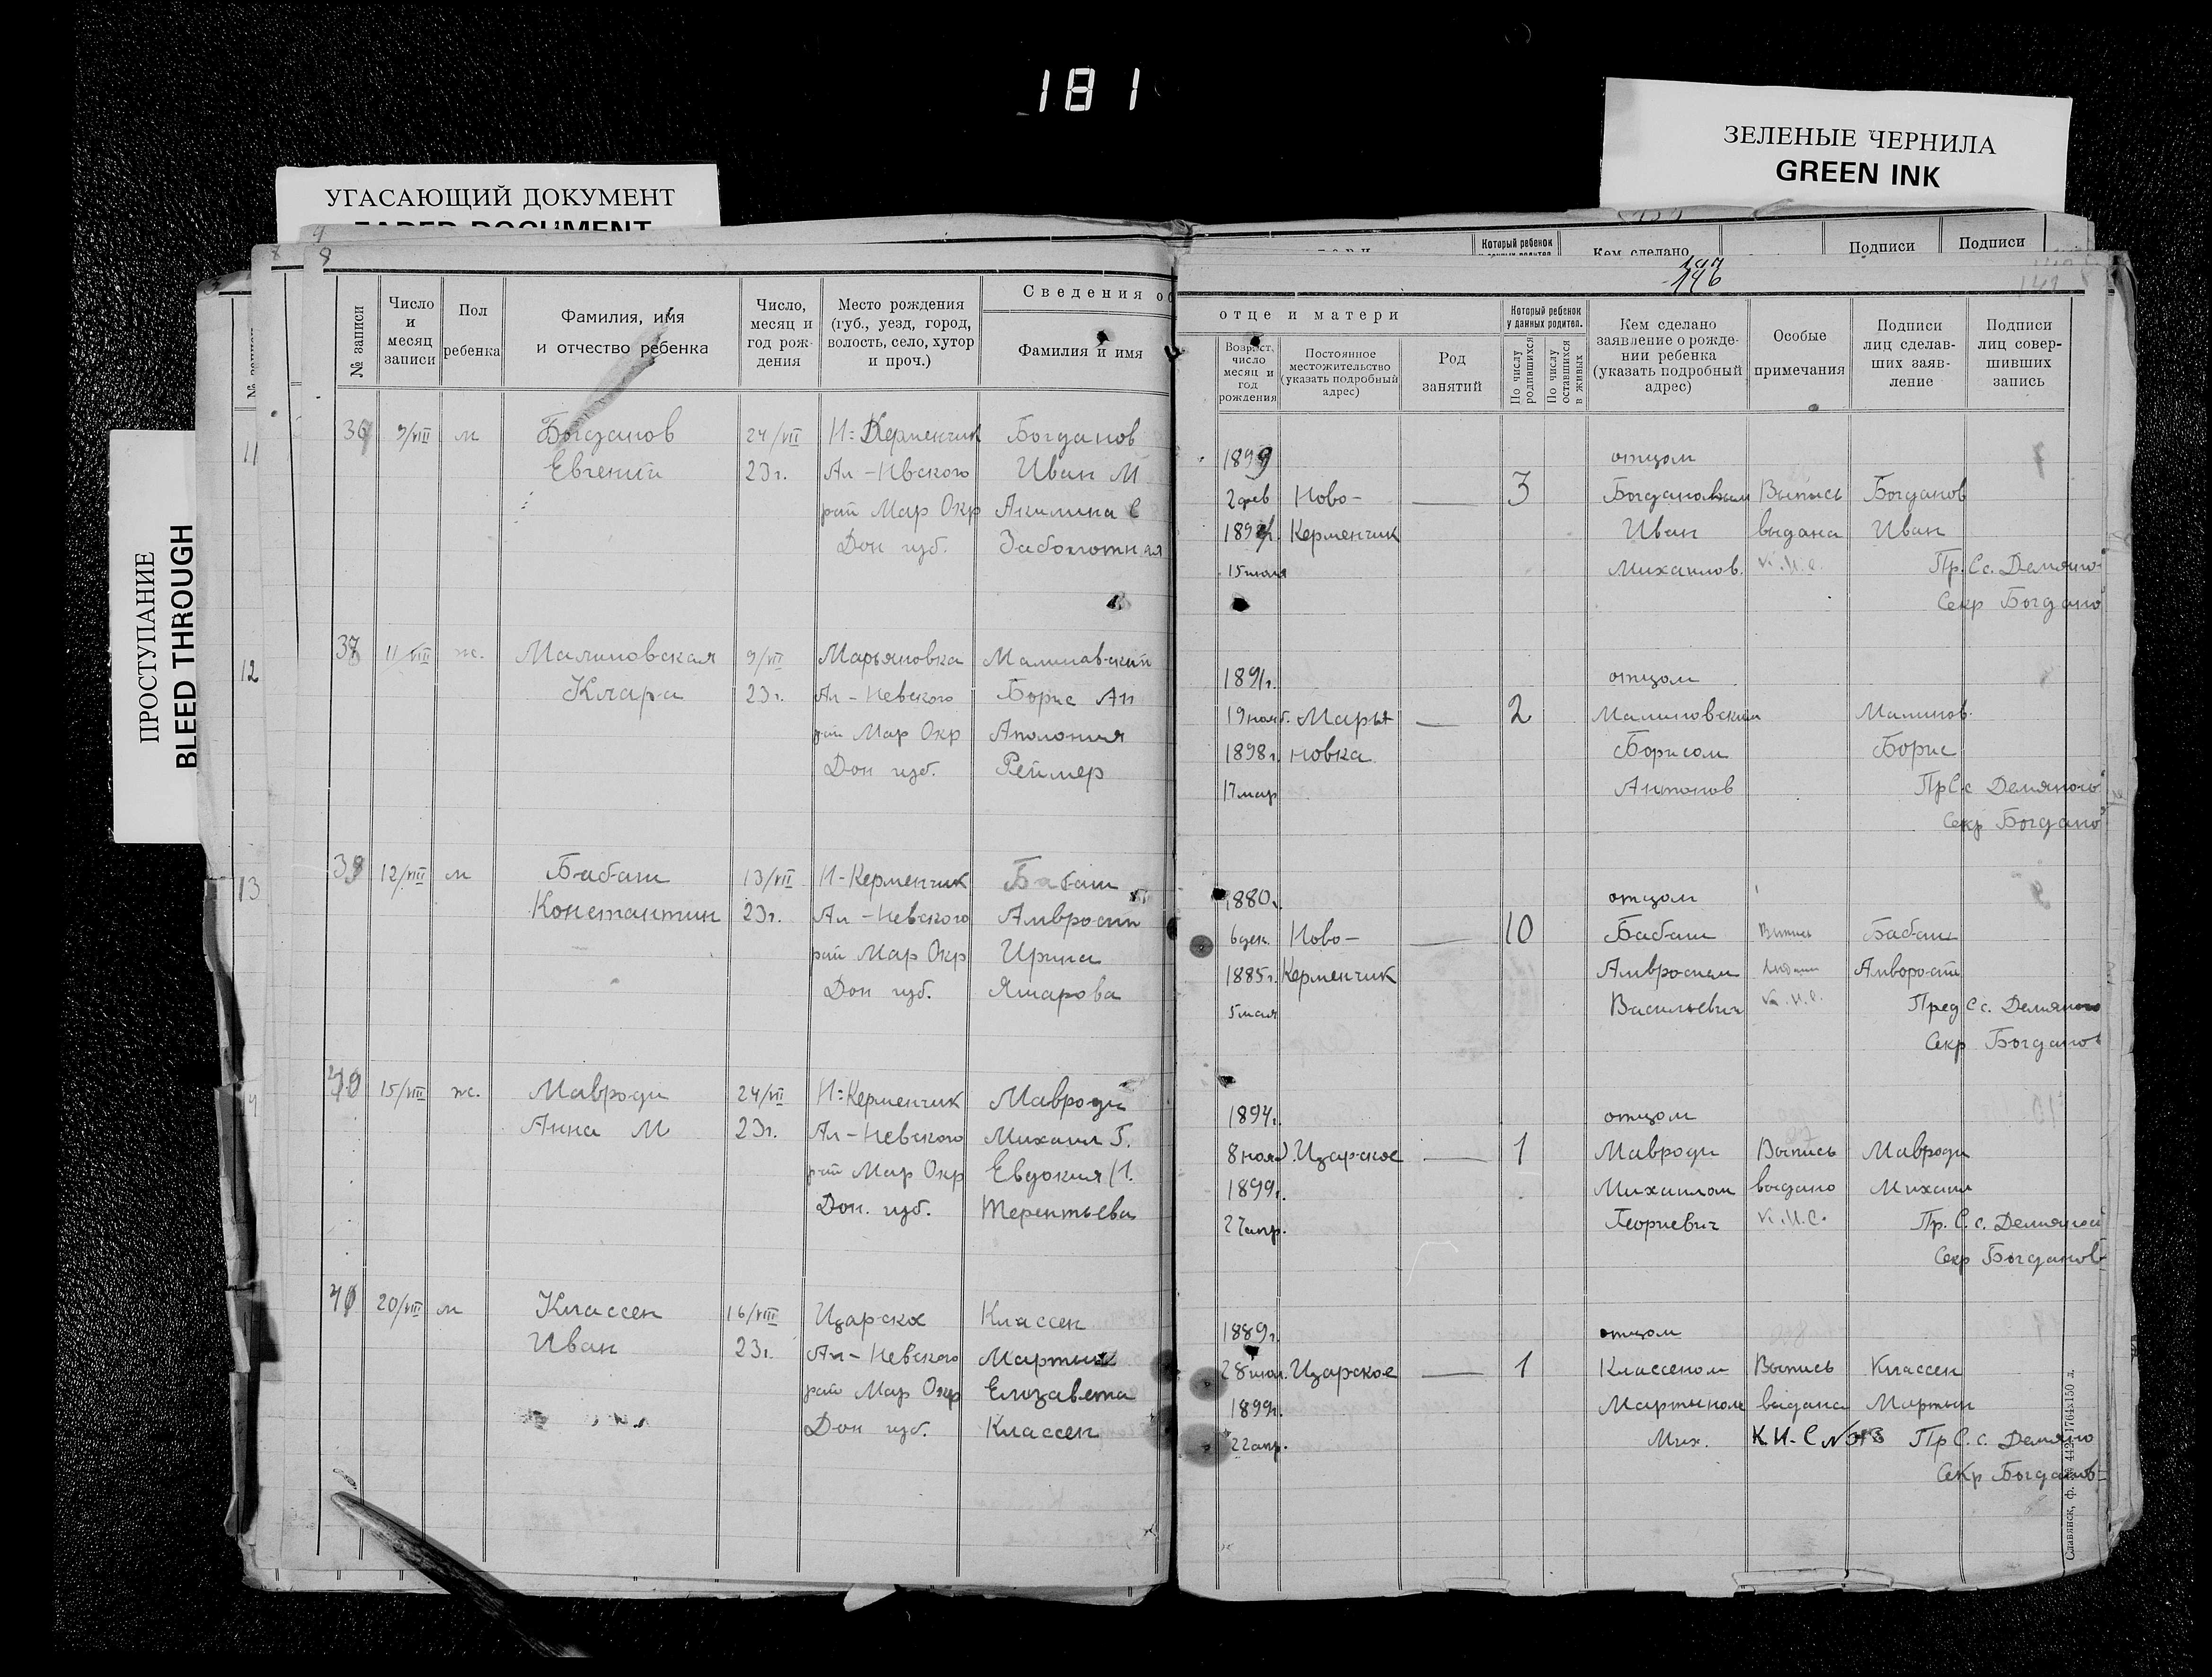 181
ЗЕЛЕНЫЕ ЧЕРНИЛА
GREEN INK
УГАСАЮЩИЙ ДОКУМЕНТ
FADED DOCUMENT
ПРОСТУПАНИЕ
BLEED THROUGH
Который ребенок
Кем сделано
Подписи
Подписи
146
№ записи
Число и месяц записи
Пол ребенка
Фамилия, имя и отчество ребенка
Число, месяц и год рождения
Место рождения (губ., уезд, город, волость, село, хутор и проч.)
Сведения об
Фамилия и имя
отце и матери
Возраст, число месяц и год рождения
Постоянное местожительство (указать подробный адрес)
Род занятий
Который ребенок у данных родител.
По числу родившихся
По числу оставшихся в живых
Кем сделано заявление о рожде-
нии ребенка (указать подробный адрес)
Особые примечания
Подписи лиц сделав-
ших заяв-
ление
Подписи лиц совер-
шивших запись
11
9/VIII м Богданов 24/VII Н=Керменчик Богданов
Евгений 23г. Ал-Невского Иван М
рай Мар Окр Акилина С
Дон губ. Заболотная
отцом
2 фев Ново- 3 Богдановым Выпись Богданов
Керменчик Иван выдана Иван
Михайлов. К.И.С. Пр. Сс. Демяно
Секр Богдано
12
11/VIII ж. Малиновская 9/VII Марьяновка Малиновский
Клара 23г. Ал-Невского Борис Ан
рай Мар Окр Аполония
Дон губ. Реймер
1891г. отцом
19 нояб. Марья 2 Малиновским Малинов.
1898г. новка Борисом Борис
17 мар Антонов Пр С.с Демяного
Секр Богдано
13
12/VIII м Бабаш 13/VII Н-Керменчик Бабаш
Константин 23г. Ал-Невского Амвросий
рай Мар Окр Ирина
Дон губ. Яшарова
1880г. отцом
6 дек. Ново- 10 Бабаш Выпись Бабаш
1885г. Керменчик Амвросием выдана Амворосий
5 мая Васильевич К.И.С. Пред Сс. Демяного
Секр Богданов
15/VIII ж. Мавроди 24/VII Н=Керменчик Мавроди
Анна М 23г. Ал-Невского Михаил Г.
рай Мар Окр Евдокия
Дон. губ. Терентьева
1894г. отцом
8 нояб. Царское 1 Мавроди Выпись Мавроди
1899г. Михаилом выдано Михаил
27 апр. Георгиевич К.И.С. Пр. С.с. Демяной
Секр Богданов
20/VIII м Классен 16/VIII Царское Классен
Иван 23г. Ал-Невского Мартын
рай Мар Окр Елизавета
Дон губ. Классен
1889г. отцом
Царское 1 Классеном Выпись Классен
1899г. Мартыном выдана Мартын
22 апр. Мих. К.И.С Пр С.с. Демяно
Секр Богданов